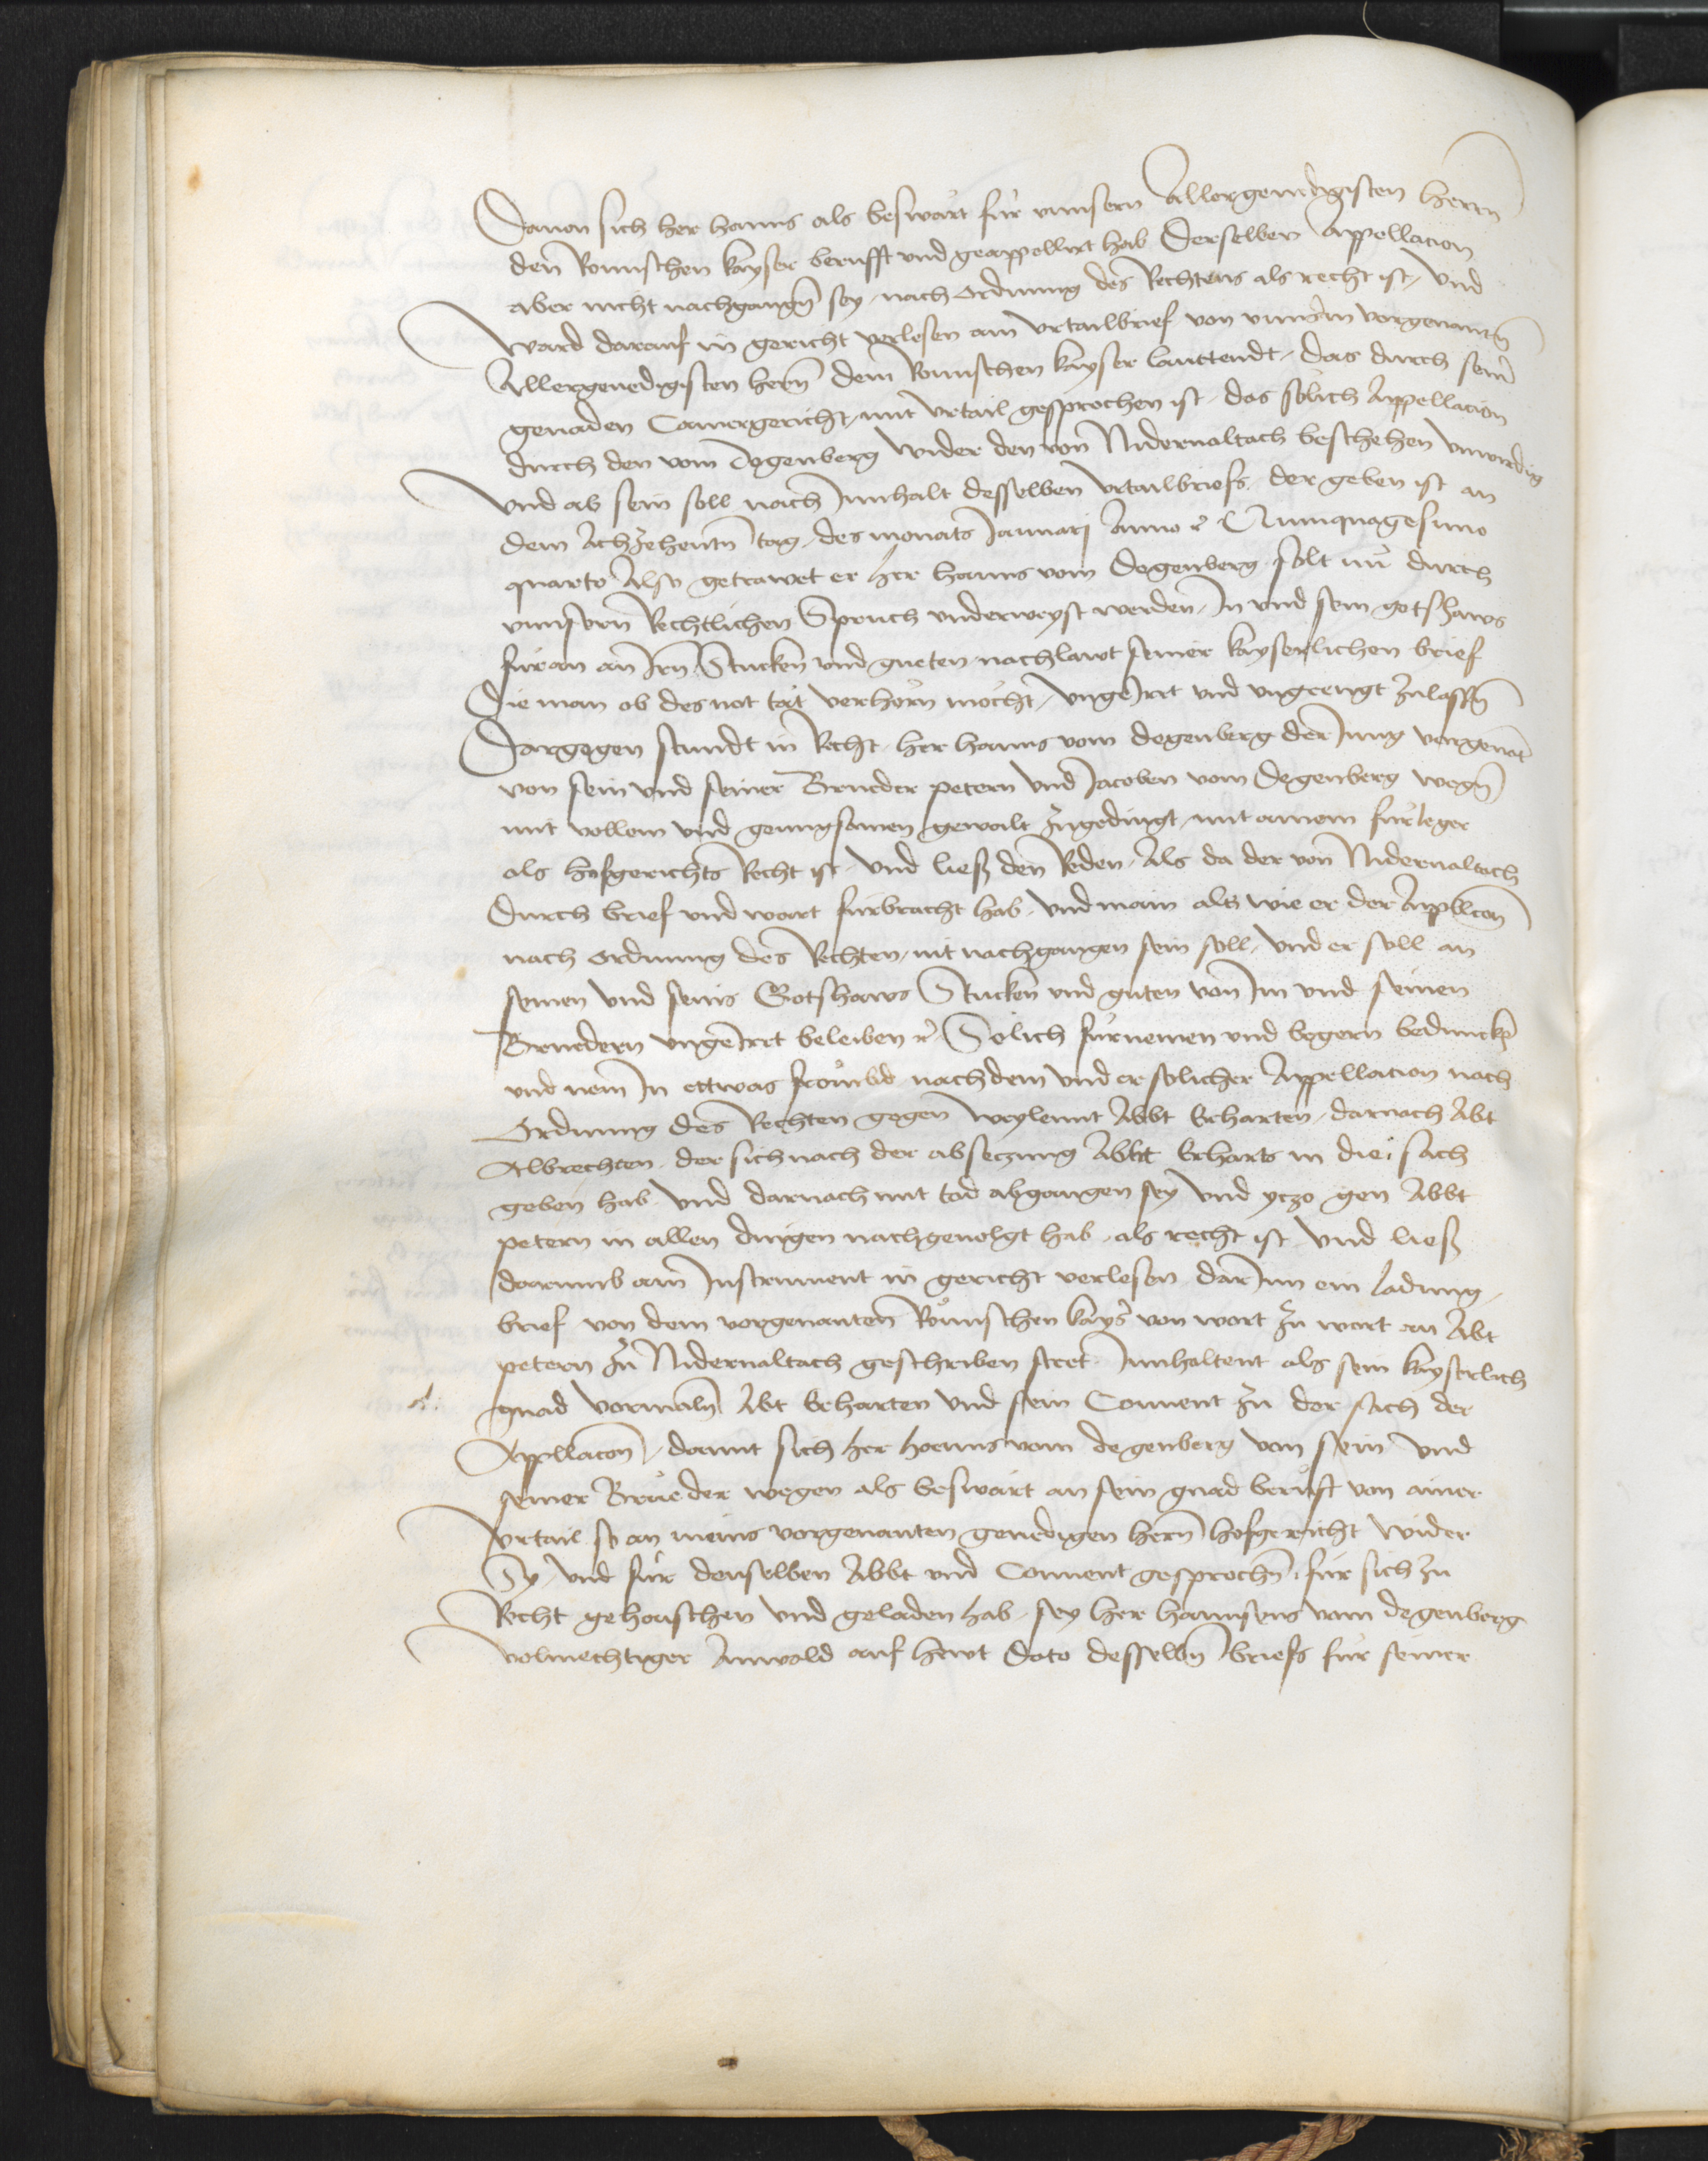 Dauon sich her hanns als beswärt für vnnsern Allergenedigisten herrn
den Romischen kayser berufft vnd geappellirt hab Derselben Appellacion
aber nicht nachgangn sey, nach ordnung des Rechtens als recht ist, vnd
Ward darauf in gericht verlesen ain vrtailbrief von vnnserm vorgenantn
Allergenedigisten hern dem Romischen kayser lauttendt, das durch seinr
genaden Camergericht, mit vrtail gesprochen ist, das sölich Appellacion
durch den vom Degenberg wider den von Nidernaltach beschehen vnwirdig
Vnd ab sein soll nach Innhalt desselben vrtailbriefs, der geben ist an
dem Achzehentn tag, des monats Januarj Anno etc Quinquagesimo
quarto Also getrawet er her hanns vom Degenberg solt nu durch
vnnsern Rechtlichen Spruch vnderweyst werden, In vnd sein gotshaws
füran an Irn Stucken vnd gueten nachlawt seiner kayserlichen brief
Die man ob des not tät verhörn möcht, vngeirrt vnd vngeengt zulassn
Dargegen stundt in Recht her hanns vom degenberg der Jung vorgenat
von sein vnd seiner Brueder petern vnd Jacoben vom Degenberg wegn
mit vollem vnd genugsamen gewalt zugedingt, mit ainem fürleger
als hofgerichts Recht ist, vnd liess den Reden, Als da der von Nidernaltach
Durch brief vnd wort fürbracht hab, vnd main als wie er der Appllacon
nach ordnung des Rechten, nit nachgangen sein soll, vnd er soll an
seinen vnd seins Gotshaws Stucken vnd guten von Im vnd seinen
Bruedern vngeirrt beleiben etc Sölich fürnemen vnd begern beduncke
vnd nem In ettwas frömbd nachdem vnd er solicher Appellacion nach
Ordnung des Rechten gegen weylennt Abbt Erharten, darnach Abt
Albrechten, der sich nach der absetzung Abbt Erharts in die sach
geben hab vnd darnach mit tod abgangen sey vnd yczo gen Abbt
petern in allen dingen nachgeuolgt hab, als recht ist vnd liess
darumb ain Instrument in gericht verlesen dar Inn ein ladung,
brief von dem vorgenanten Römischen kayser von wort zu wort an Abt
petern zu Nidernaltach geschriben steet Innhaltent als sein kayserlich
gnad vormaln Abt Erharten vnd sein Conuent zu der sach der
Appllacon, damit sich her hanns vom degenberg von sein vnd
seiner Brueder wegen als beswärt an sein gnad berüft von ainer
vrtail so an meins vorgenanten genedigen hern hofgericht wider
Sy, vnd für denselben Abbt vnd Conuent gesprochn, für sich zu
Recht geheischen vnd geladen hab, sey her hannsens vom degenberg
volmechtiger Anwald auf hewt dato desselbn briefs für seiner